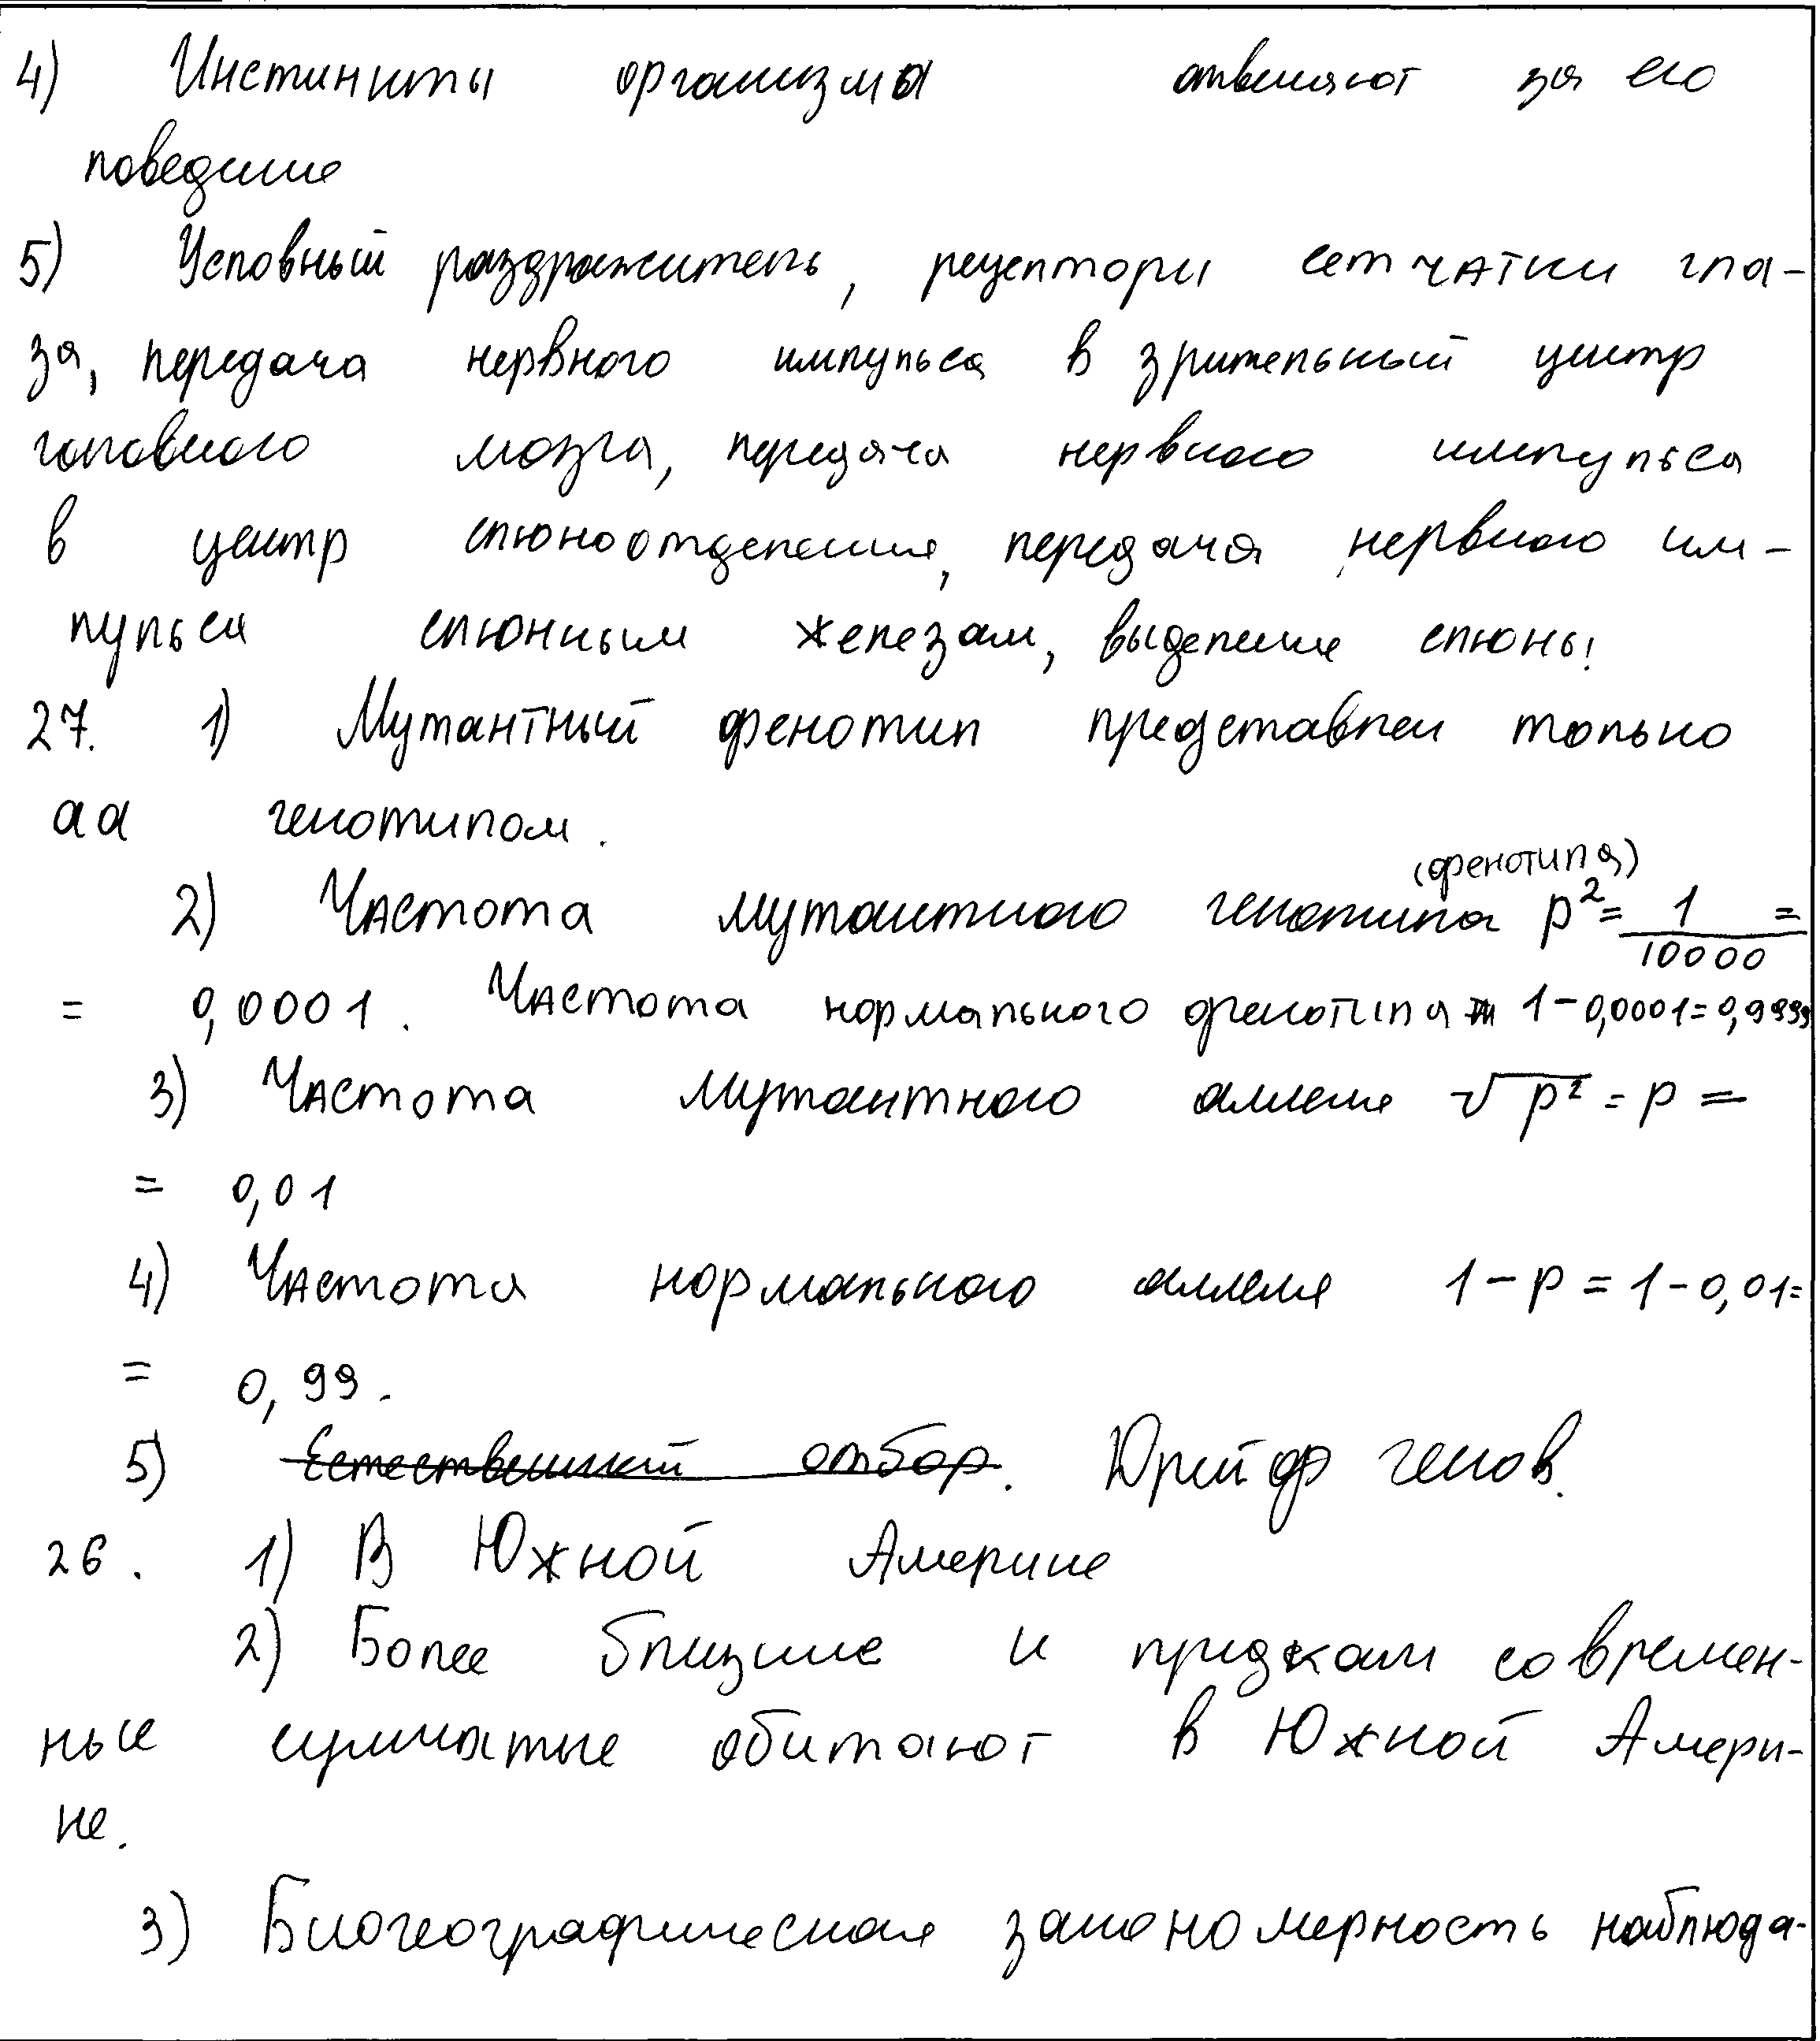 4) Инстинкты организма отвечают за его
поведение
5) Условный раздражитель, рецепторы сетчатки гла-
за, передача нервного импульса в зрительный центр
головного мозга, передача нервного импульса
в центр слюноотделения, передача нервного им-
пульса слюнным железам, выделение слюны.
27. 1) Мутантный фенотип представлен только
аа генотипом.
(фенотипа)
2) Частота мутантного генотипа p² = 1/10000 =
= 0,0001. Частота нормального фенотипа 1-0,0001=0,9999
3) Частота мутантного аллеля √p² = p =
= 0,01
4) Частота нормального аллеля 1-p = 1-0,01=
= 0,99.
5) Естественный отбор. Дрейф генов.
26. 1) В Южной Америке
2) Более близкие к предкам современ-
ные сумчатые обитают в Южной Амери-
ке.
3) Биогеографическая закономерность наблюда-